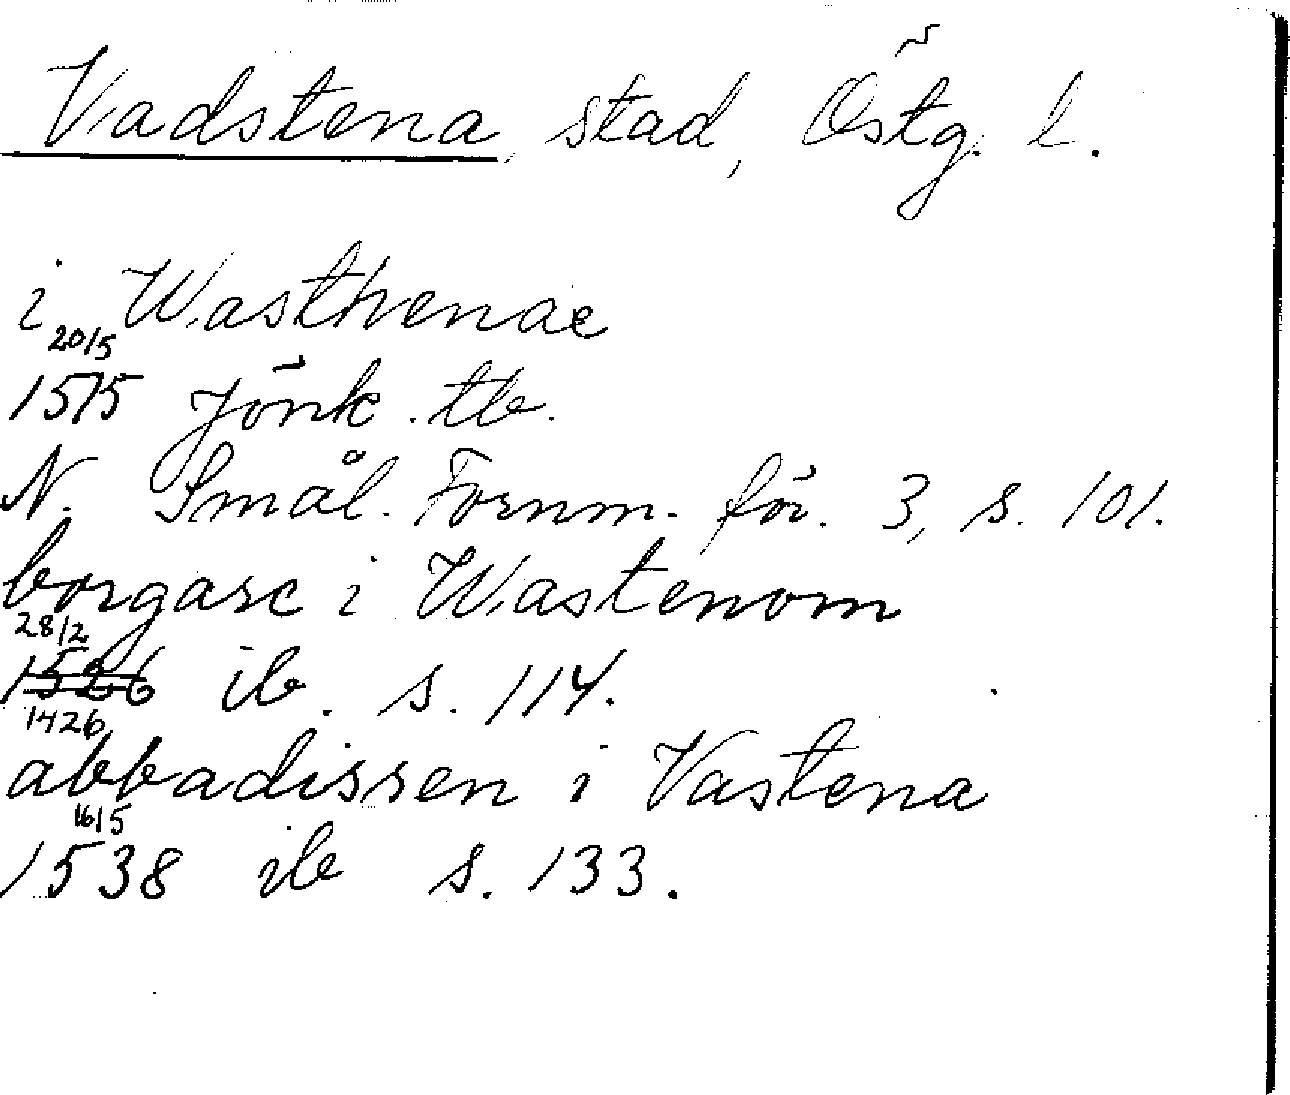 Vadstena, stad, Östg. l.
i Wasthenae
20/5
1515 Jönk. tb.
N. Smål. Fornm. för. 3, s. 101.
borgare i Wastenom
28/2
1526 ib. s. 114.
1426
abbadissen i Vastena
16/5
1538 ib s. 133.